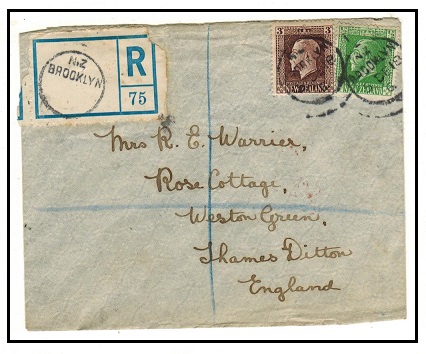 N.Z
BROOKLYN
R
75
3d
NEW ZEALAND
Mrs R. E. Warrier,
Rose Cottage,
Weston Green,
Thames Ditton
England